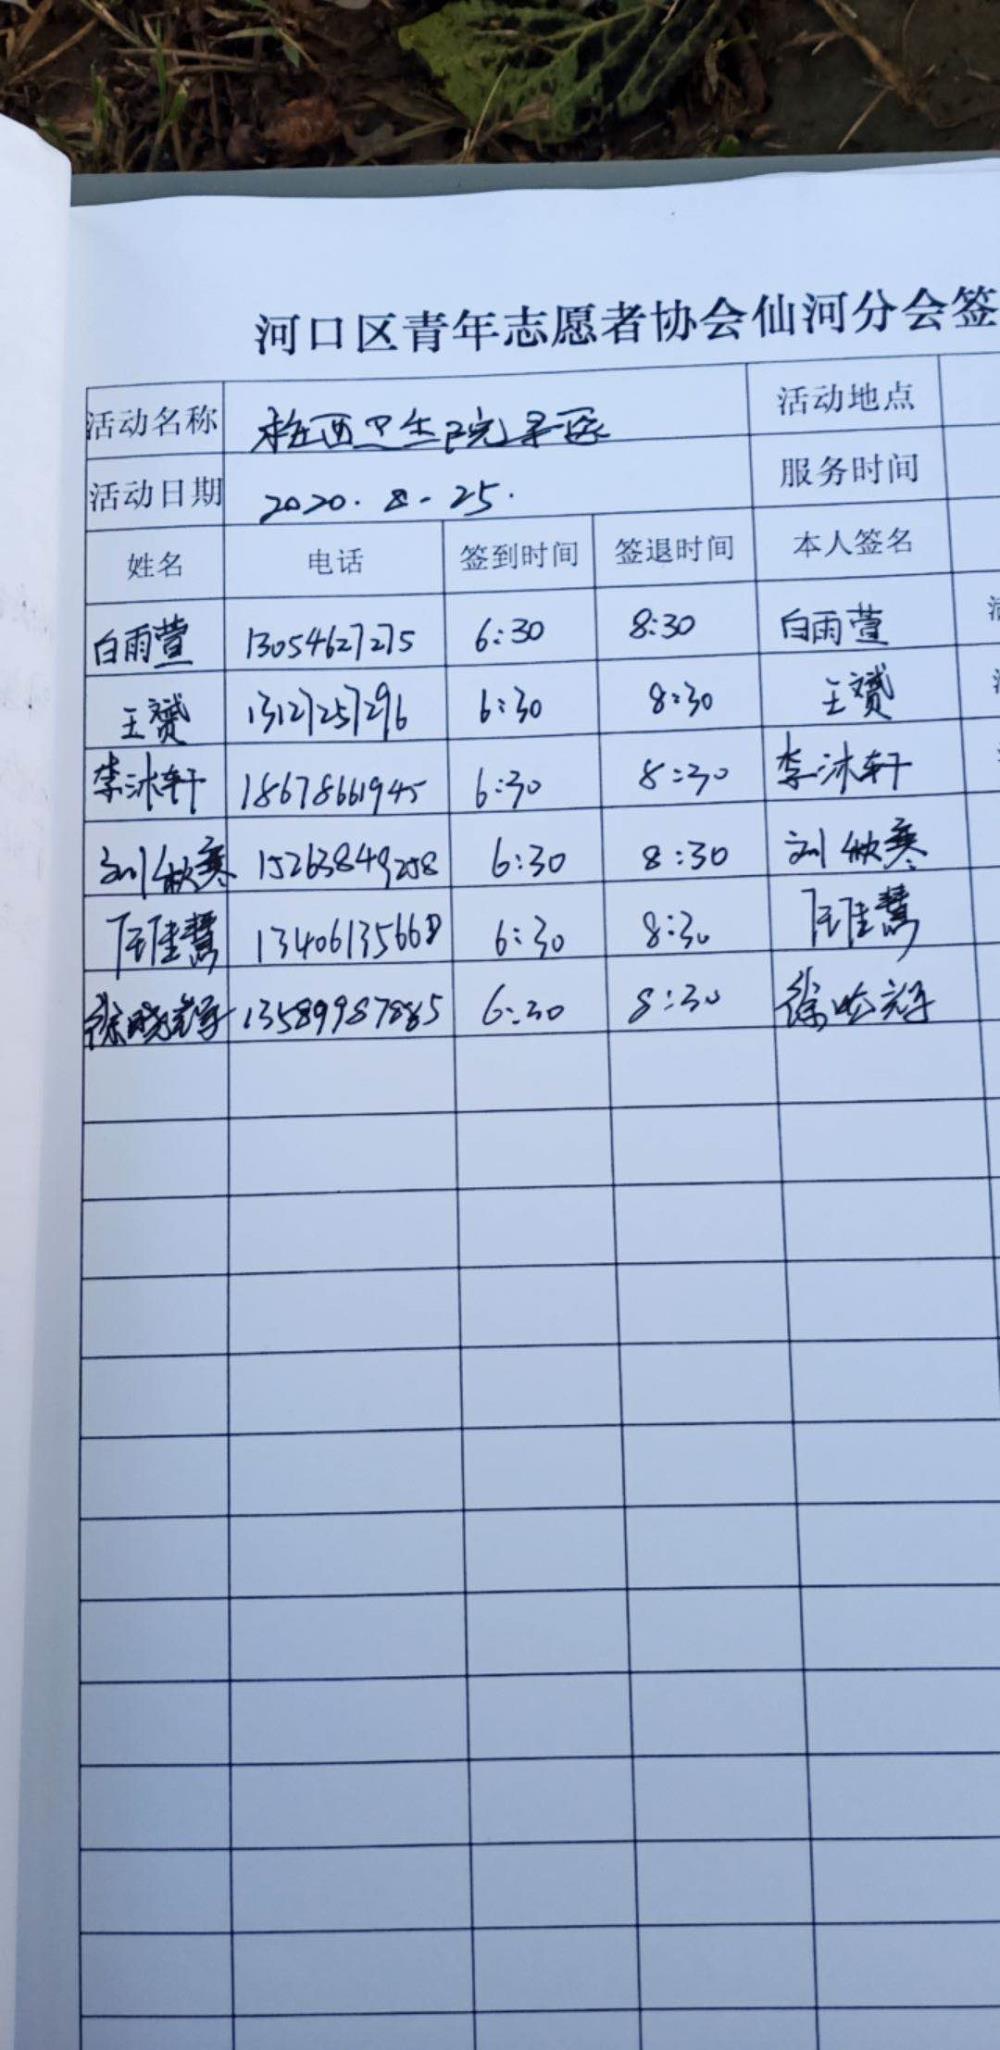 河口区青年志愿者协会仙河分会签
活动名称 桩西卫生院寻医 活动地点
活动日期 2020.8-25. 服务时间
姓名 电话 签到时间 签退时间 本人签名
白雨萱 13054627275 6:30 8:30 白雨萱 活
王赟 13127257296 6:30 8:30 王赟
李沐轩 18678661945 6:30 8:30 李沐轩
刘秋寒 15263849258 6:30 8:30 刘秋寒
陈佳慧 13406135668 6:30 8:30 陈佳慧
徐晓辉 13589987885 6:30 8:30 徐晓辉